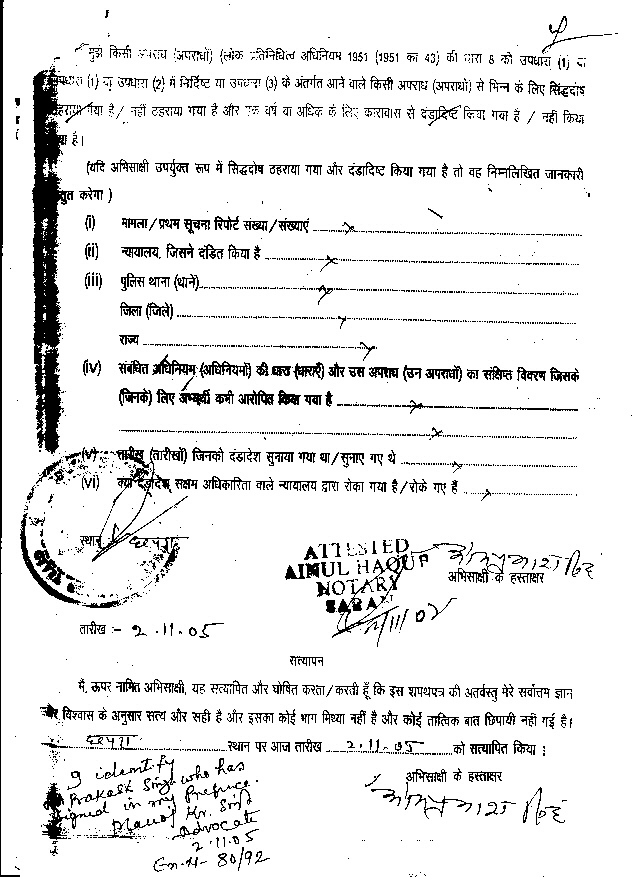 मुझे किसी अपराध (अपराधों) (लोक प्रतिनिधित्व अधिनियम 1951 (1951 का 43) की धारा 8 की उपधारा (1) या
उपधारा (1) या उपधारा (2) में निर्दिष्ट या उपधारा (3) के अंतर्गत आने वाले किसी अपराध (अपराधों) से भिन्न के लिए सिद्धदोष
ठहराया गया है / नहीं ठहराया गया है और एक वर्ष या अधिक के लिए कारावास से दंडादिष्ट किया गया है / नहीं किया
गया है।
(यदि अभिसाक्षी उपर्युक्त रूप में सिद्धदोष ठहराया गया और दंडादिष्ट किया गया है तो वह निम्नलिखित जानकारी
स्तुत करेगा )
(i) मामला/प्रथम सूचना रिपोर्ट संख्या/संख्याएं ........ x
(ii) न्यायालय, जिसने दंडित किया है ........ x
(iii) पुलिस थाना (थाने) ........ x
जिला (जिले) ........ x
राज्य ........ x
(iv) संबंधित अधिनियम (अधिनियमों) की धारा (धाराएँ) और उस अपराध (उन अपराधों) का संक्षिप्त विवरण जिसके
(जिनके) लिए अभ्यर्थी कभी आरोपित किया गया है ........ x
........ x
(v) तारीख (तारीखों) जिनको दंडादेश सुनाया गया था/सुनाए गए थे ........ x
(vi) क्या दंडादेश सक्षम अधिकारिता वाले न्यायालय द्वारा रोका गया है/रोके गए हैं ........ x
स्थान छपरा
ATTESTED
AINUL HAQUE
NOTARY
SARAN
अभिसाक्षी के हस्ताक्षर
तारीख :- 2.11.05
सत्यापन
मैं, ऊपर नामित अभिसाक्षी, यह सत्यापित और घोषित करता/करती हूँ कि इस शपथपत्र की अंतर्वस्तु मेरे सर्वोत्तम ज्ञान
और विश्वास के अनुसार सत्य और सही है और इसका कोई भाग मिथ्या नहीं है और कोई तात्विक बात छिपायी नहीं गई है।
छपरा ........ स्थान पर आज तारीख 2.11.05 को सत्यापित किया :
अभिसाक्षी के हस्ताक्षर
I identify
Prakash Singh who has
signed in my presence.
Manoj Kr. Singh
Advocate
2.11.05
En.N- 80/92